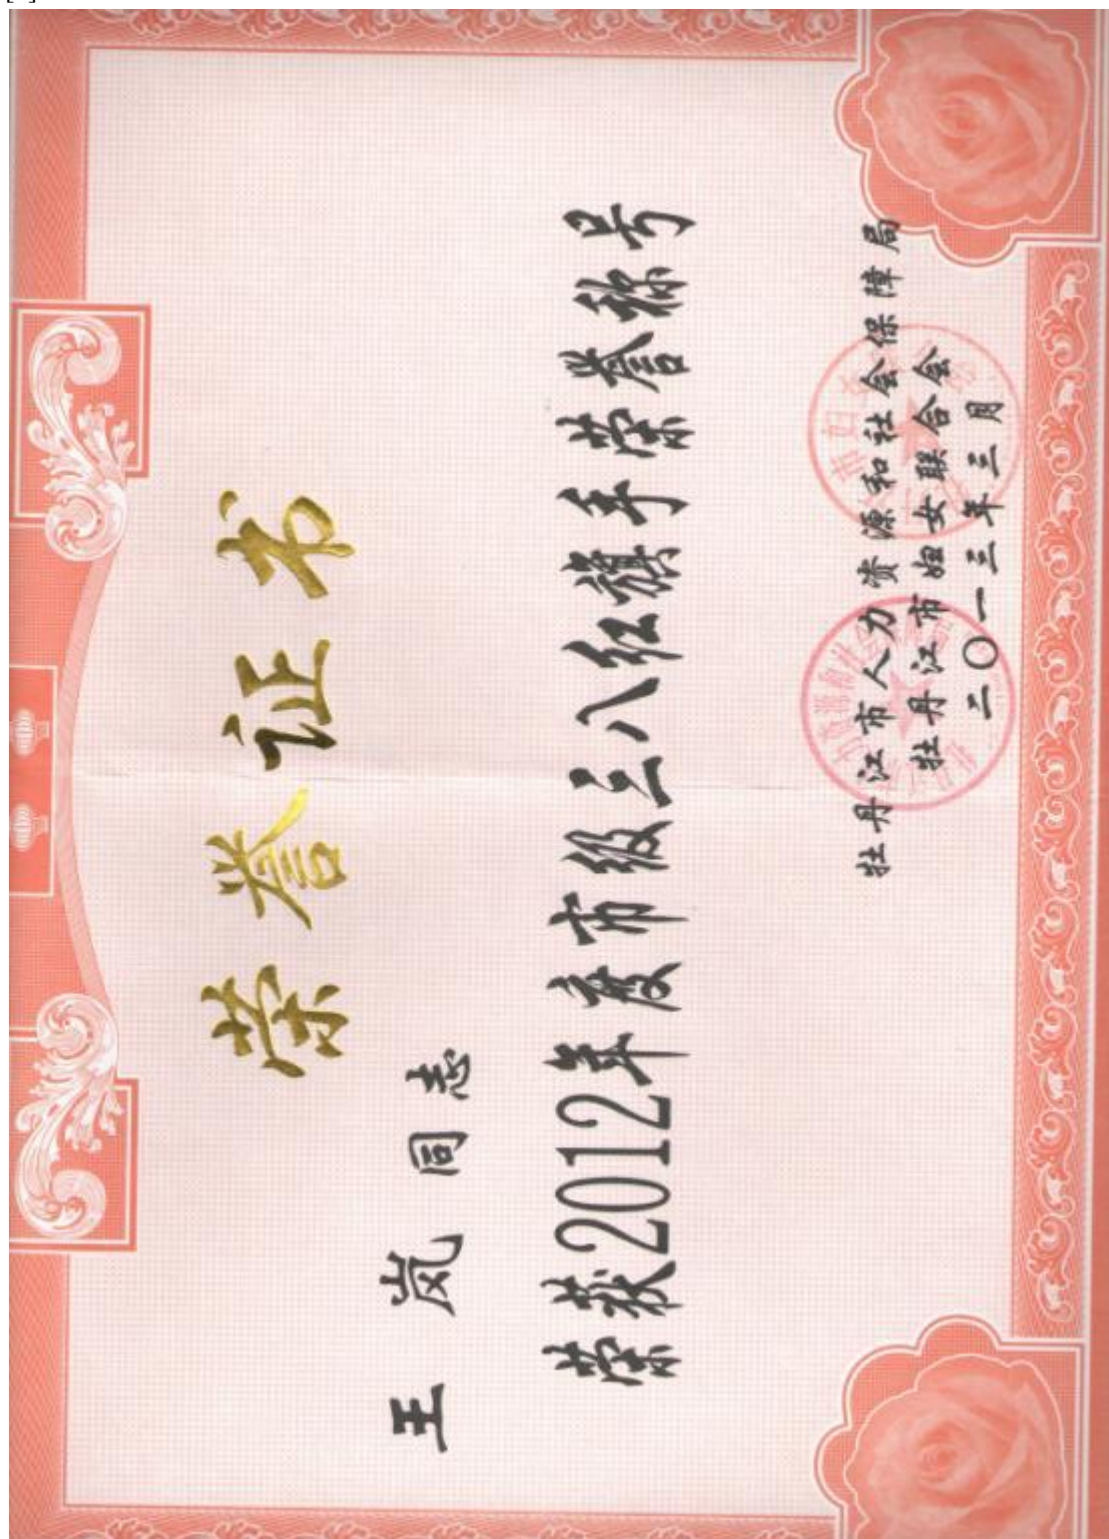 荣誉证书
王岚同志
荣获2012年度市级三八红旗手荣誉称号
牡丹江市人力资源和社会保障局
牡丹江市妇女联合会
二〇一三年三月